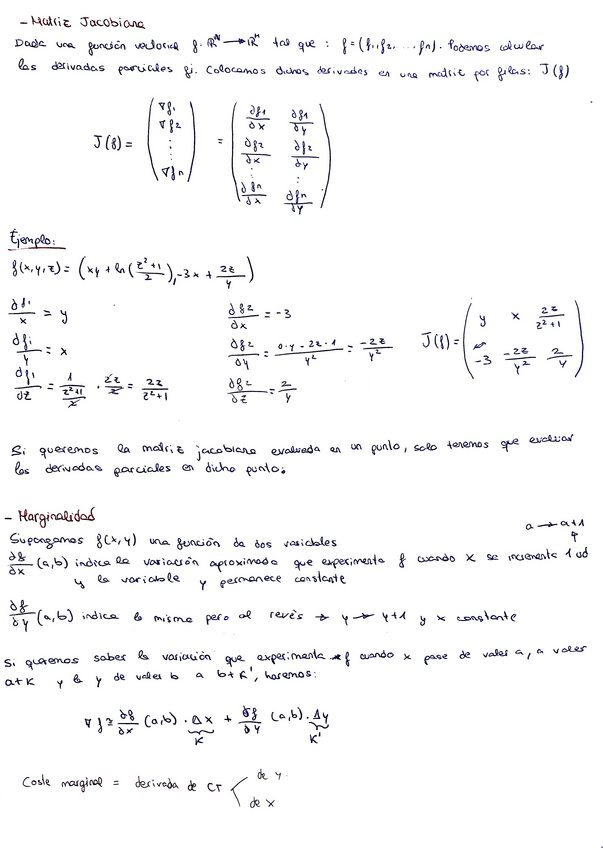 - Matriz Jacobiana
Dada una función vectorial f: ℝᴺ → ℝᴹ tal que : f = (f₁, f₂, ... fn). Podemos calcular
las derivadas parciales fi. Colocamos dichas derivadas en una matriz por filas: J(f)
J(f) = (∇f₁ ∇f₂ ⋮ ∇fn) = (∂f1/∂x ∂f1/∂y ∂f2/∂x ∂f2/∂y ⋮ ⋮ ∂fn/∂x ∂fn/∂y)
Ejemplo:
f(x,y,z) = (xy + ln(z²+1/2), -3x + 2z/y)
∂f₁/x = y
∂f2/∂x = -3
∂f₁/y = x
∂f2/∂y = 0·y - 2z·1/y² = -2z/y²
J(f) = (y x 2z/z²+1 -3 -2z/y² 2/y)
∂f₁/∂z = 1/(z²+1/2) · 2z/2 = 2z/z²+1
∂f2/∂z = 2/y
Si queremos la matriz jacobiana evaluada en un punto, solo tenemos que evaluar
las derivadas parciales en dicho punto.
- Marginalidad
a → a+1
Supongamos f(x,y) una función de dos variables
∂f/∂x (a,b) indica la variación aproximada que experimenta f cuando x se incrementa 1 ud
y la variable y permanece constante
∂f/∂y (a,b) indica lo mismo pero al revés → y → y+1 y x constante
Si queremos saber la variación que experimenta f cuando x pase de valer a, a valer
a+K y la y de valer b a b+K', haremos:
∇f ≅ ∂f/∂x (a,b) · Δx + ∂f/∂y (a,b) · Δy
K K'
Coste marginal = derivada de CT
de y.
de x